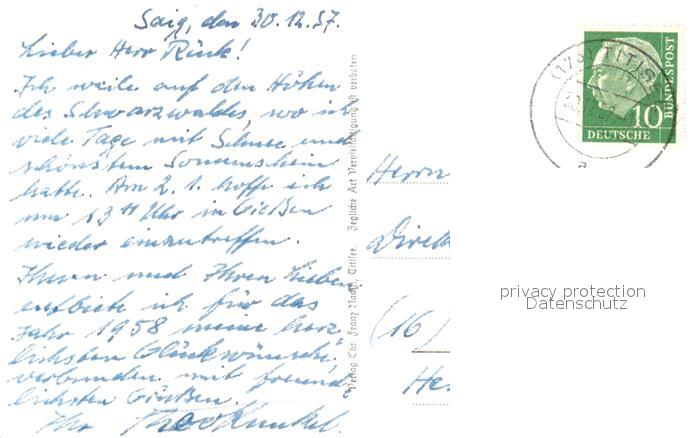 Saig, den 30.12.57.
Lieber Herr Rück!
Ich weile auf den Höhen
des Schwarzwaldes, wo ich
viele Tage mit Schnee und
schönstem Sonnenschein
hatte. Am 2. 1. hoffe ich
um 13 11 Uhr in Gießen
wieder einzutreffen.
Ihnen und Ihren Lieben
entbiete ich für das
Jahr 1958 meine herz-
lichsten Glückwünsche,
verbunden mit freund-
lichsten Grüßen.
Ihr Theo Kunkel.
Verlag Chr. Franz, Titisee. Jegliche Art Vervielfältigung ist verboten
Herrn
Direk
(16)
He
TITIS
10
DEUTSCHE
BUNDESPOST
privacy protection
Datenschutz